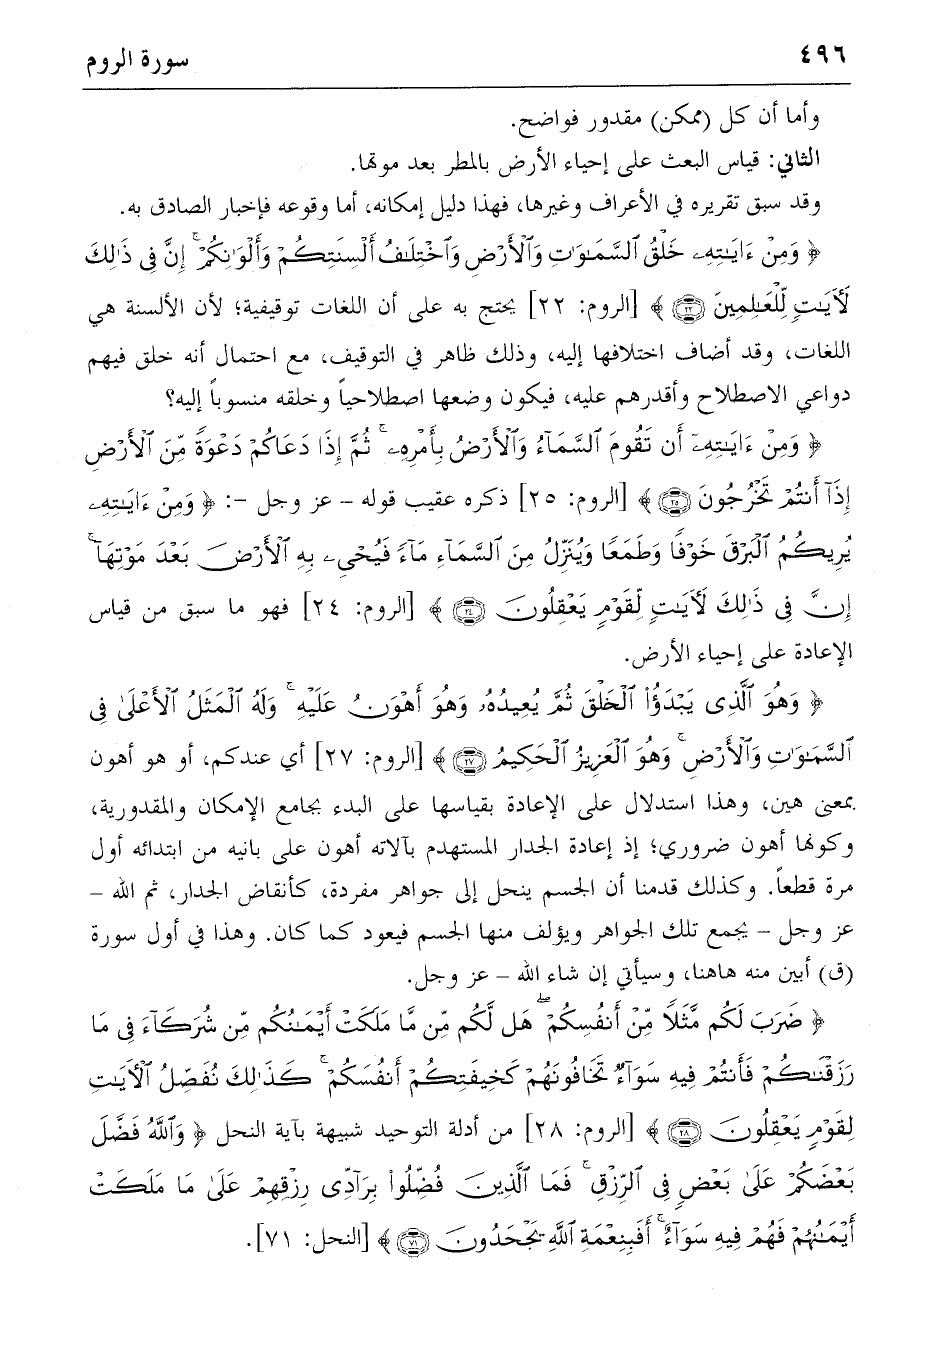 ٤٩٦
سورة الروم
وأما أن كل (ممكن) مقدور فواضح.
الثاني: قياس البعث على إحياء الأرض بالمطر بعد موتها.
وقد سبق تقريره في الأعراف وغيرها، فهذا دليل إمكانه، أما وقوعه فإخبار الصادق به.
﴿ وَمِنْ ءَايَـٰتِهِۦ خَلْقُ ٱلسَّمَـٰوَٰتِ وَٱلْأَرْضِ وَٱخْتِلَـٰفُ أَلْسِنَتِكُمْ وَأَلْوَٰنِكُمْ ۚ إِنَّ فِى ذَٰلِكَ
لَـَٔايَـٰتٍ لِّلْعَـٰلِمِينَ ﴿٢٢﴾ ﴾ [الروم: ٢٢] يحتج به على أن اللغات توقيفية؛ لأن الألسنة هي
اللغات، وقد أضاف اختلافها إليه، وذلك ظاهر في التوقيف، مع احتمال أنه خلق فيهم
دواعي الاصطلاح وأقدرهم عليه، فيكون وضعها اصطلاحياً وخلقه منسوباً إليه؟
﴿ وَمِنْ ءَايَـٰتِهِۦٓ أَن تَقُومَ ٱلسَّمَآءُ وَٱلْأَرْضُ بِأَمْرِهِۦ ۚ ثُمَّ إِذَا دَعَاكُمْ دَعْوَةً مِّنَ ٱلْأَرْضِ
إِذَآ أَنتُمْ تَخْرُجُونَ ﴿٢٥﴾ ﴾ [الروم: ٢٥] ذكره عقيب قوله – عز وجل –: ﴿ وَمِنْ ءَايَـٰتِهِۦ
يُرِيكُمُ ٱلْبَرْقَ خَوْفًا وَطَمَعًا وَيُنَزِّلُ مِنَ ٱلسَّمَآءِ مَآءً فَيُحْىِۦ بِهِ ٱلْأَرْضَ بَعْدَ مَوْتِهَآ ۚ
إِنَّ فِى ذَٰلِكَ لَـَٔايَـٰتٍ لِّقَوْمٍ يَعْقِلُونَ ﴿٢٤﴾ ﴾ [الروم: ٢٤] فهو ما سبق من قياس
الإعادة على إحياء الأرض.
﴿ وَهُوَ ٱلَّذِى يَبْدَؤُا۟ ٱلْخَلْقَ ثُمَّ يُعِيدُهُۥ وَهُوَ أَهْوَنُ عَلَيْهِ ۚ وَلَهُ ٱلْمَثَلُ ٱلْأَعْلَىٰ فِى
ٱلسَّمَـٰوَٰتِ وَٱلْأَرْضِ ۚ وَهُوَ ٱلْعَزِيزُ ٱلْحَكِيمُ ﴿٢٧﴾ ﴾ [الروم: ٢٧] أي عندكم، أو هو أهون
بمعنى هين، وهذا استدلال على الإعادة بقياسها على البدء بجامع الإمكان والمقدورية،
وكونها أهون ضروري؛ إذ إعادة الجدار المستهدم بآلاته أهون على بانيه من ابتدائه أول
مرة قطعاً. وكذلك قدمنا أن الجسم ينحل إلى جواهر مفردة، كأنقاض الجدار، ثم الله –
عز وجل – يجمع تلك الجواهر ويؤلف منها الجسم فيعود كما كان. وهذا في أول سورة
(ق) أبين منه هاهنا، وسيأتي إن شاء الله – عز وجل.
﴿ ضَرَبَ لَكُم مَّثَلًا مِّنْ أَنفُسِكُمْ ۖ هَل لَّكُم مِّن مَّا مَلَكَتْ أَيْمَـٰنُكُم مِّن شُرَكَآءَ فِى مَا
رَزَقْنَـٰكُمْ فَأَنتُمْ فِيهِ سَوَآءٌ تَخَافُونَهُمْ كَخِيفَتِكُمْ أَنفُسَكُمْ ۚ كَذَٰلِكَ نُفَصِّلُ ٱلْـَٔايَـٰتِ
لِقَوْمٍ يَعْقِلُونَ ﴿٢٨﴾ ﴾ [الروم: ٢٨] من أدلة التوحيد شبيهة بآية النحل ﴿ وَٱللَّهُ فَضَّلَ
بَعْضَكُمْ عَلَىٰ بَعْضٍ فِى ٱلرِّزْقِ ۚ فَمَا ٱلَّذِينَ فُضِّلُوا۟ بِرَآدِّى رِزْقِهِمْ عَلَىٰ مَا مَلَكَتْ
أَيْمَـٰنُهُمْ فَهُمْ فِيهِ سَوَآءٌ ۚ أَفَبِنِعْمَةِ ٱللَّهِ يَجْحَدُونَ ﴿٧١﴾ ﴾ [النحل: ٧١].